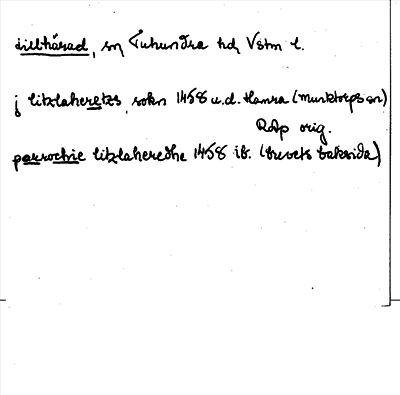 Lillhärad, sn Tuhundra hd, Vstm l.
j litzlaheretes sokn 1458 u.d. Hamra (Munktorps sn)
RAp orig.
parrochie litzlaheredhe 1458 ib. (brevets baksida)